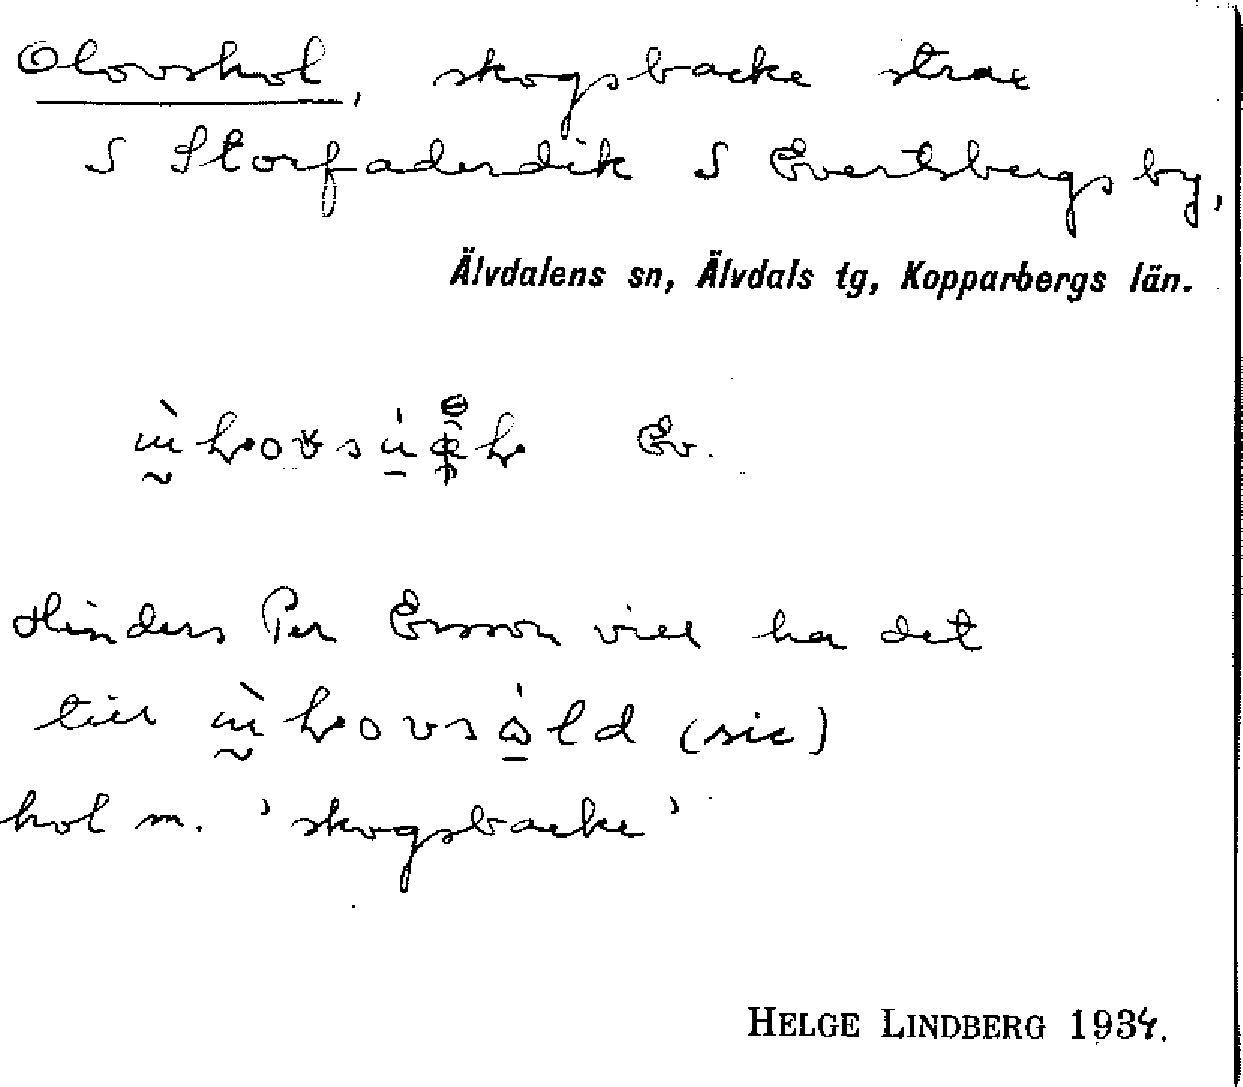 Olovshol, skogsbacke strax
S Storfaderdik S Evertsbergs by,
Älvdalens sn, Älvdals tg, Kopparbergs län.
Ev.
Hinders Per Ersson vill ha det
till (sic)
hol m. 'skogsbacke'
HELGE LINDBERG 1934.